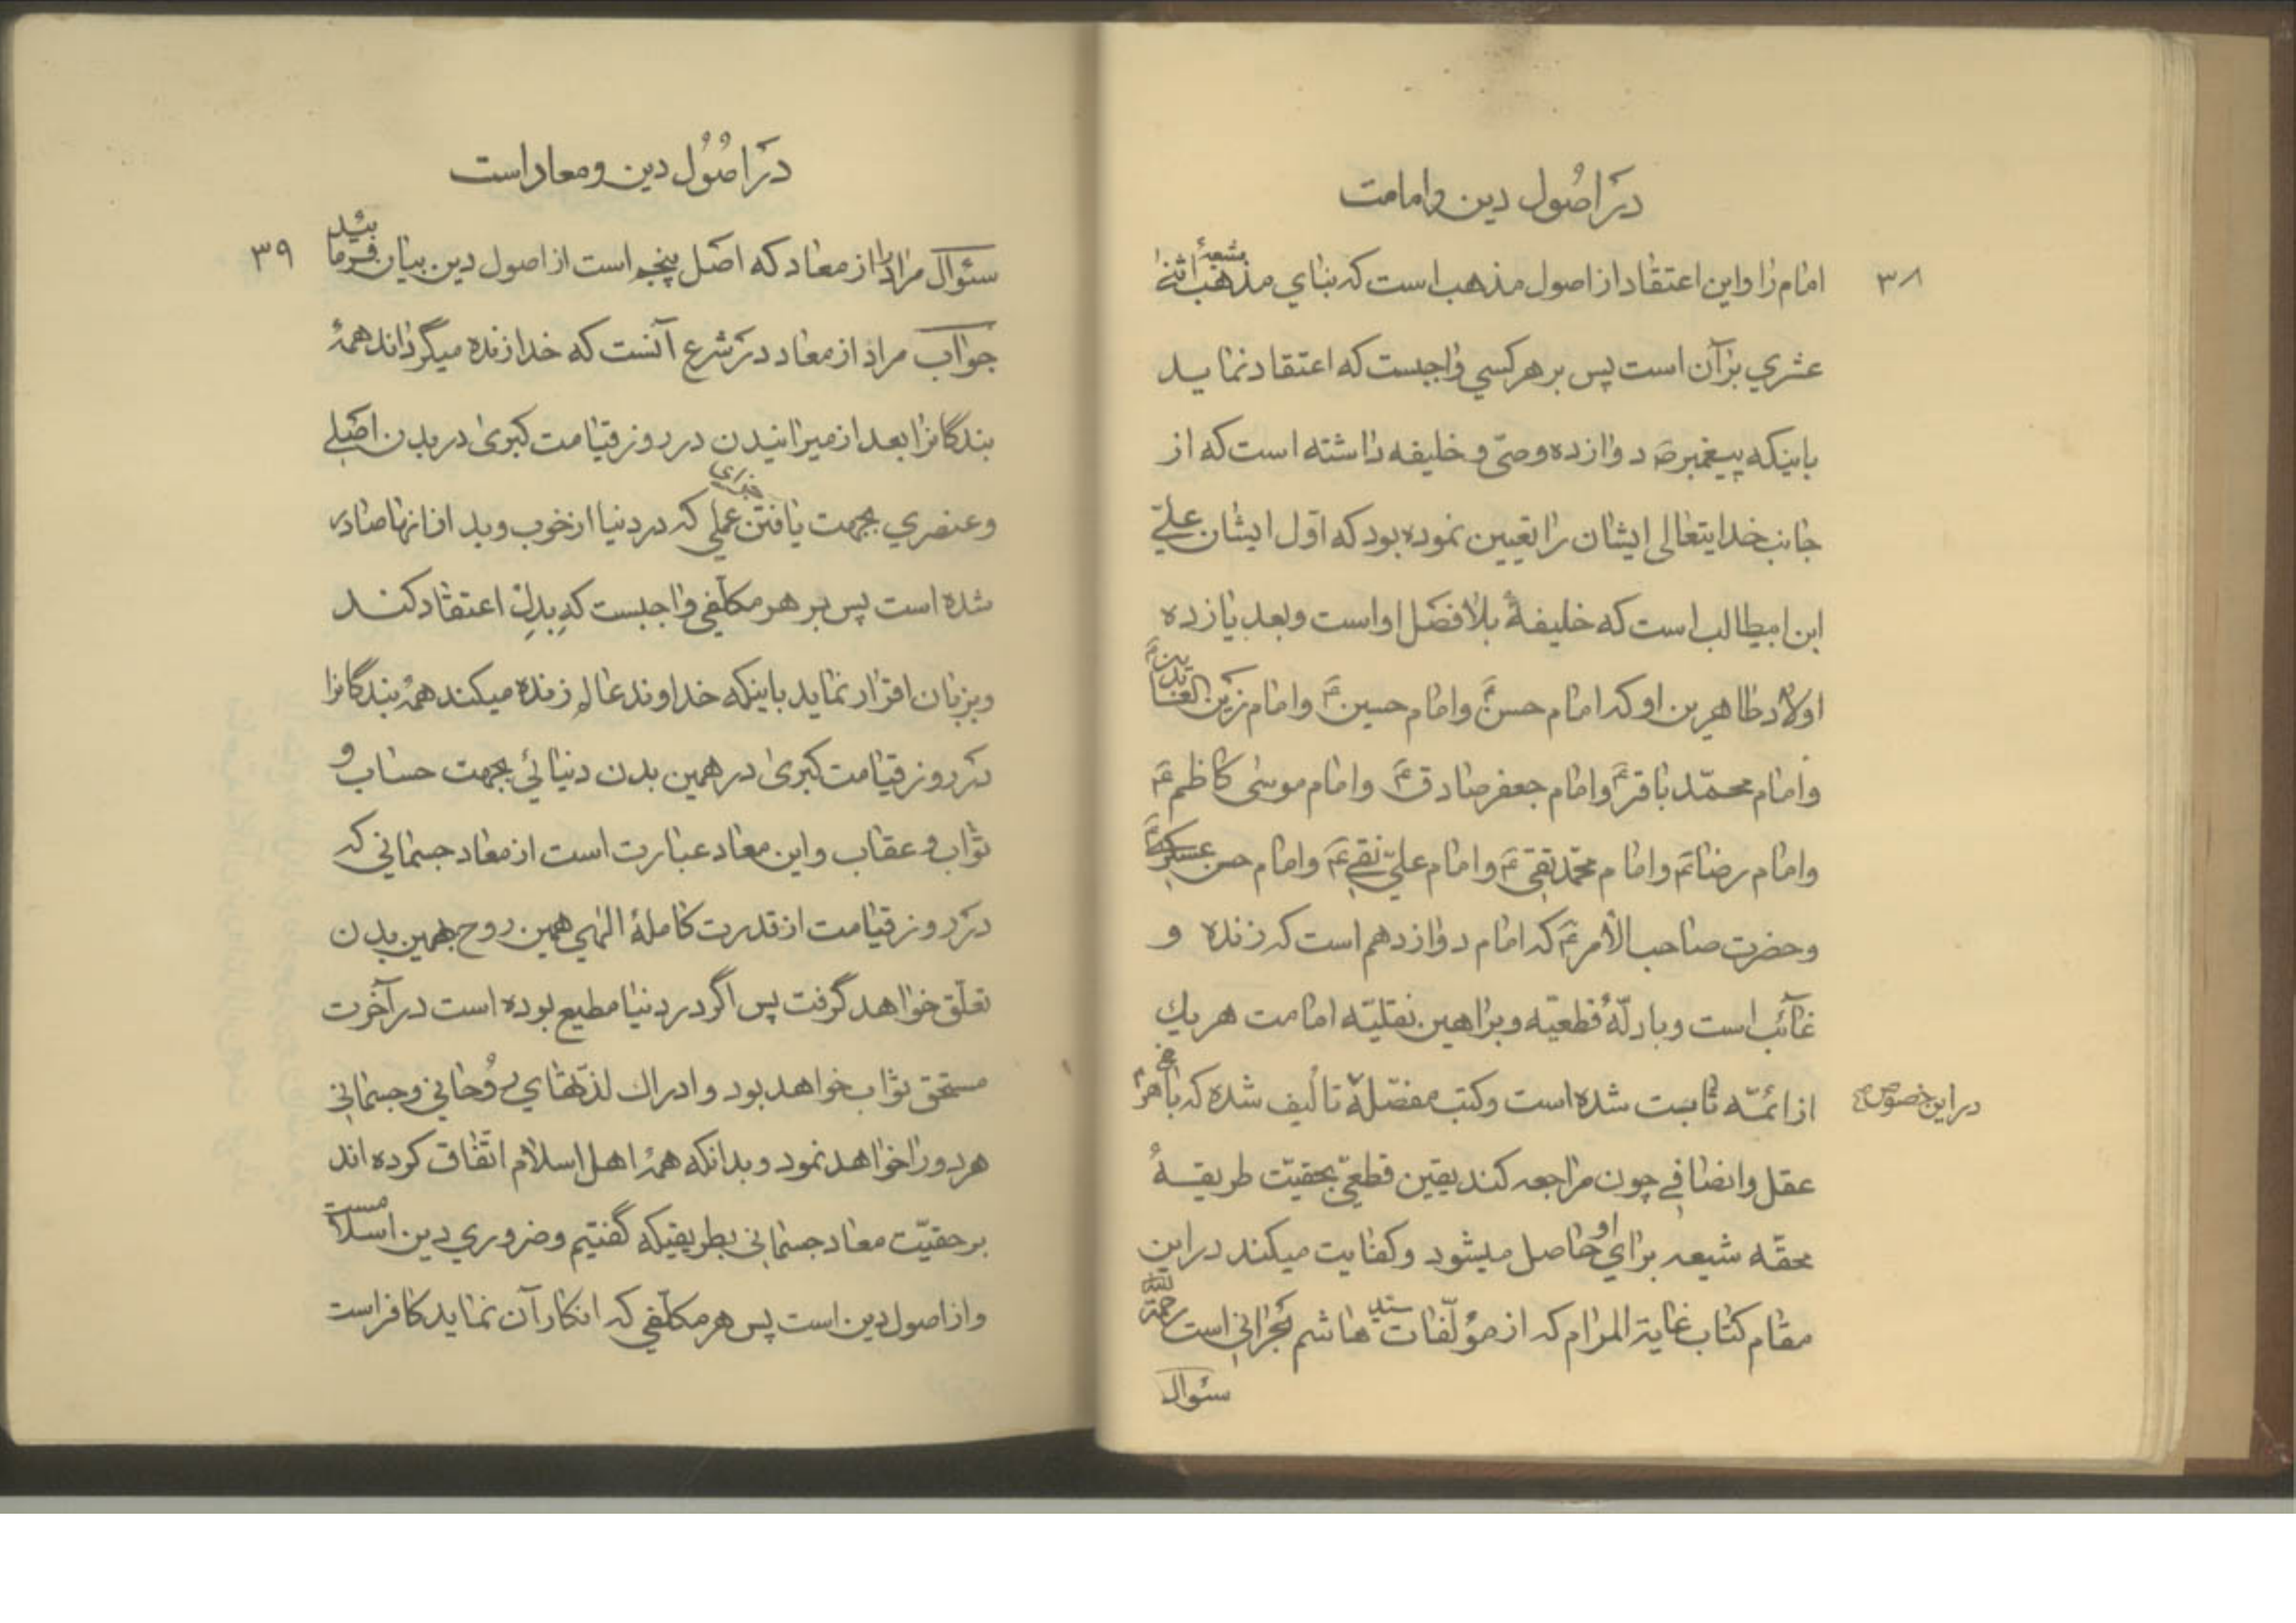 در اصُول دین و امامت
۳۸
امام را و این اعتقاد از اصول مذهب است که بنای مذهب شیعهٔ اثنا
عشری بر آن است پس بر هر کسی واجبست که اعتقاد نماید
باینکه پیغمبر ص دوازده وصیّ و خلیفه داشته است که از
جانب خدایتعالی ایشان را تعیین نموده بود که اوّل ایشان علیّ
ابن ابیطالب است که خلیفهٔ بلافصل او است و بعد یازده
اولاد طاهرین او که امام حسنؑ و امام حسینؑ و امام زین العابدینؑ
و امام محمّد باقرؑ و امام جعفر صادقؑ و امام موسی کاظمؑ
و امام رضاؑ و امام محمّد تقیؑ و امام علیّ نقیؑ و امام حسن عسکریؑ
و حضرت صاحب الأمرؑ که امام دوازدهم است که زنده و
غائب است و بادلّهٔ قطعیّه و براهین نقلیّه امامت هریك
از ائمّه ثابت شده است و کتب مفصّلهٔ تألیف شده که با هر
در این خصوص
عقل و انصافی چون مراجعه کند یقین قطعیّ بحقیّت طریقهٔ
محقّه شیعه برای او حاصل میشود و کفایت میکند در این
مقام کتاب غایة المرام که از مؤلّفات سیّد هاشم بحرانی است رحمة الله
سئوال
در اصُول دین و معاد است
۳۹
سئوال مراد را از معاد که اصل پنجم است از اصول دین بیان فرمائید
جواب مراد از معاد در شرع آنست که خدا زنده میگرداند همهٔ
بندگانرا بعد از میرانیدن در روز قیامت کبری در بدن اصلی
و عنصری بجهت یافتن جزای عملی که در دنیا از خوب و بد از آنها صادر
شده است پس بر هر مکلّفی واجبست که بدل اعتقاد کند
و بزبان اقرار نماید باینکه خداوند عالم زنده میکند همهٔ بندگانرا
در روز قیامت کبری در همین بدن دنیائی بجهت حساب و
ثواب و عقاب و این معاد عبارت است از معاد جسمانی که
در روز قیامت از قدرت کاملهٔ الهی همین روح بهمین بدن
تعلّق خواهد گرفت پس اگر در دنیا مطیع بوده است در آخرت
مستحق ثواب خواهد بود و ادراك لذّتهای رُوحانی و جسمانی
هر دو را خواهد نمود و بدانکه همهٔ اهل اسلام اتّفاق کرده اند
بر حقیّت معاد جسمانی بطریقیکه گفتیم و ضروری دین اسلامست
و از اصول دین است پس هر مکلّفی که انکار آن نماید کافر است